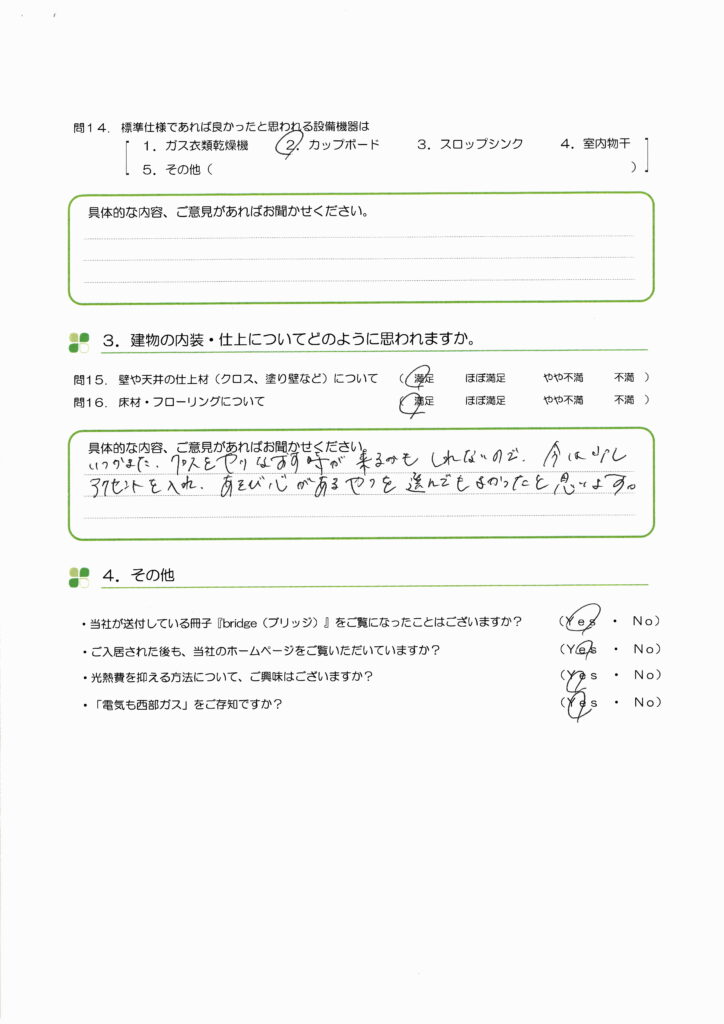 問14．標準仕様であれば良かったと思われる設備機器は
1．ガス衣類乾燥機　2．カップボード　3．スロップシンク　4．室内物干
5．その他（　）
具体的な内容、ご意見があればお聞かせください。
3．建物の内装・仕上についてどのように思われますか。
問15．壁や天井の仕上材（クロス、塗り壁など）について　（ 満足　ほぼ満足　やや不満　不満 ）
問16．床材・フローリングについて　（ 満足　ほぼ満足　やや不満　不満 ）
具体的な内容、ご意見があればお聞かせください。
いつかまた、クロスをやりなおす時が来るかもしれないので、今は少し
アクセントを入れ、あそび心があるやつを選んでもよかったと思います。
4．その他
・当社が送付している冊子『bridge（ブリッジ）』をご覧になったことはございますか？　（Yes ・ No）
・ご入居された後も、当社のホームページをご覧いただいていますか？　（Yes ・ No）
・光熱費を抑える方法について、ご興味はございますか？　（Yes ・ No）
・「電気も西部ガス」をご存知ですか？　（Yes ・ No）